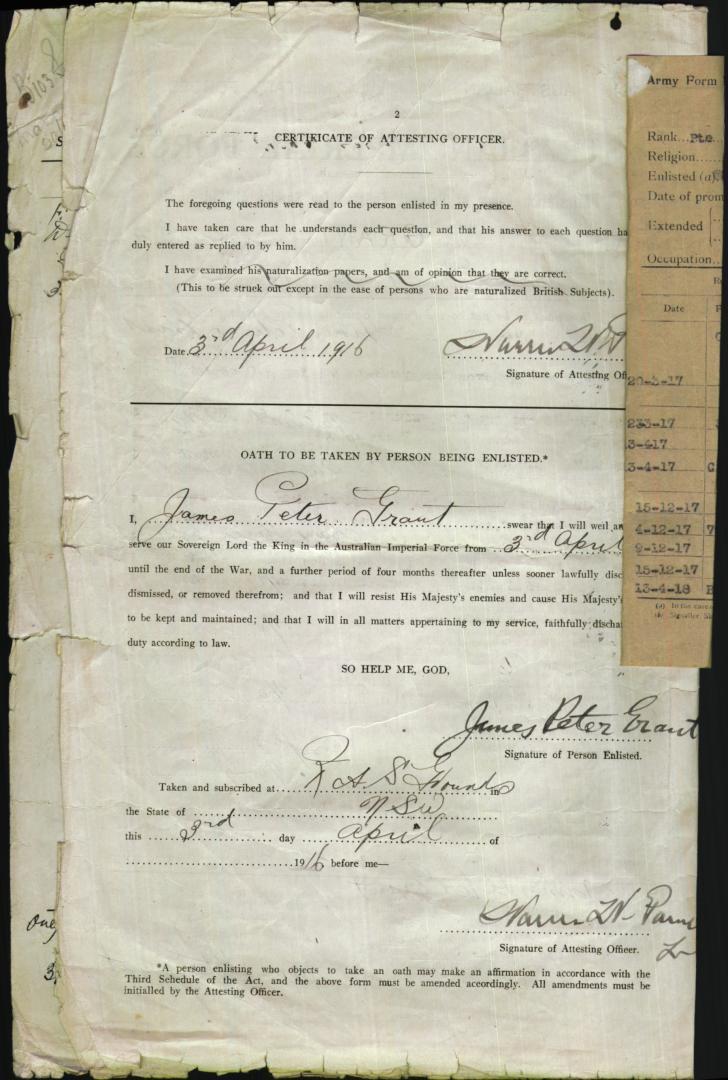 2
CERTIFICATE OF ATTESTING OFFICER.
The foregoing questions were read to the person enlisted in my presence.
I have taken care that he understands each question, and that his answer to each question ha
duly entered as replied to by him.
I have examined his naturalization papers, and am of opinion that they are correct.
(This to be struck out except in the ease of persons who are naturalized British Subjects).
Date 3rd April 1916
Signature of Attesting Off
OATH TO BE TAKEN BY PERSON BEING ENLISTED.*
I, James Peter Grant swear that I will well an
serve our Sovereign Lord the King in the Australian Imperial Force from 3rd April
until the end of the War, and a further period of four months thereafter unless sooner lawfully disc
dismissed, or removed therefrom; and that I will resist His Majesty's enemies and cause His Majesty's
to be kept and maintained; and that I will in all matters appertaining to my service, faithfully discha
duty according to law.
SO HELP ME, GOD,
James Peter Grant
Signature of Person Enlisted.
Taken and subscribed at R A S Grounds in
the State of NSW
this 3rd day April of
1916 before me—
Signature of Attesting Officer.
*A person enlisting who objects to take an oath may make an affirmation in accordance with the
Third Schedule of the Act, and the above form must be amended aceordingly. All amendments must be
initialled by the Attesting Officer.
Army Form
Rank Pte
Religion
Enlisted (a)
Date of prom
Extended
Occupation
Date
20-3-17
233-17
3-417
3-4-17
15-12-17
4-12-17 7
9-12-17
15-12-17
13-4-18
(a) In the case o